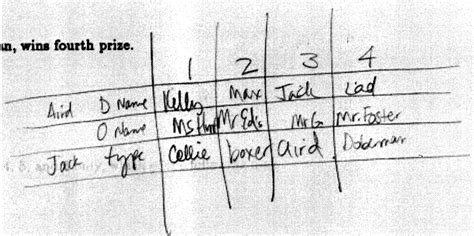 an, wins fourth prize.
1 2 3 4
Aird D Name Kelly Max Jack Lad
O Name Ms Mr Ed's Mr G Mr. Foster
Jack type Collie boxer Aird Doberman